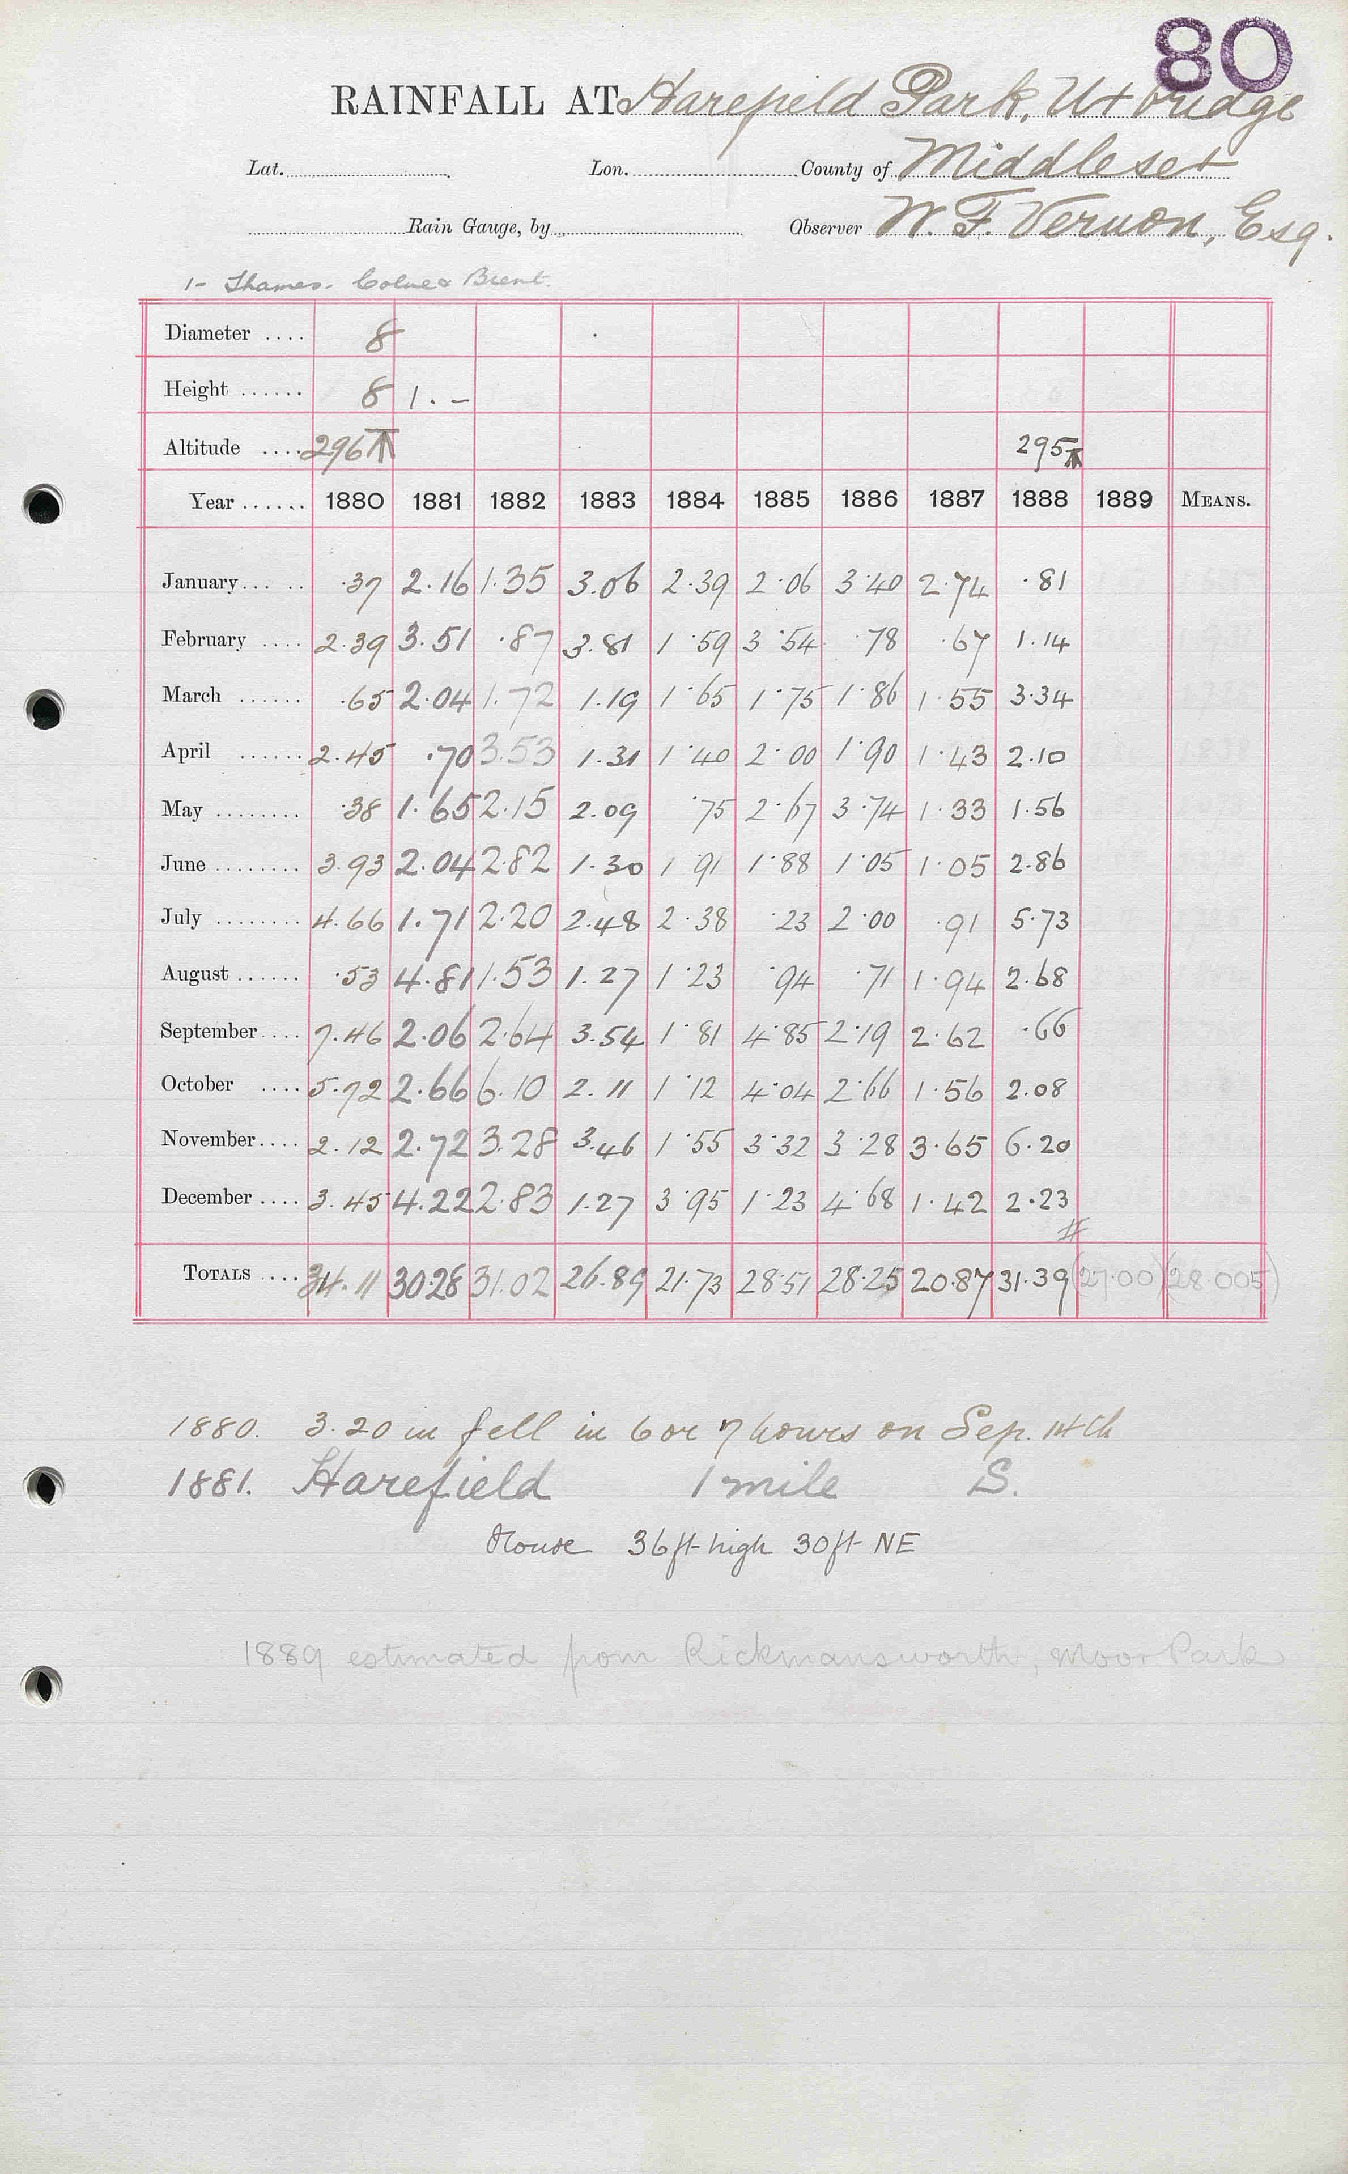 80
RAINFALL AT Harefield Park, Uxbridge
Lat. Lon. County of Middlesex
Rain Gauge, by Observer W. F. Vernon, Esq.
1- Thames. Colne & Brent.
Diameter .... 8
Height ...... 8 1. -
Altitude .... 296 295
Year ...... 1880 1881 1882 1883 1884 1885 1886 1887 1888 1889 MEANS.
January ... .. .37 2.16 1.35 3.06 2.39 2.06 3.40 2.74 .81
February .... 2.39 3.51 .87 3.81 1.59 3.54 .78 .67 1.14
March ...... .65 2.04 1.72 1.19 1.65 1.75 1.86 1.55 3.34
April ...... 2.45 .70 3.53 1.31 1.40 2.00 1.90 1.43 2.10
May ........ .38 1.65 2.15 2.09 .75 2.67 3.74 1.33 1.56
June ........ 3.93 2.04 2.82 1.30 1.91 1.88 1.05 1.05 2.86
July ........ 4.66 1.71 2.20 2.48 2.38 .23 2.00 .91 5.73
August ...... .53 4.81 1.53 1.27 1.23 .94 .71 1.94 2.68
September .... 7.46 2.06 2.64 3.54 1.81 4.85 2.19 2.62 .66
October .... 5.72 2.66 6.10 2.11 1.12 4.04 2.66 1.56 2.08
November .... 2.12 2.72 3.28 3.46 1.55 3.32 3.28 3.65 6.20
December .... 3.45 4.22 2.83 1.27 3.95 1.23 4.68 1.42 2.23
TOTALS .... 34.11 30.28 31.02 26.89 21.73 28.51 28.25 20.87 31.39 (27.00) (28.005)
1880. 3.20 in fell in 6 or 7 hours on Sep. 14th
1881. Harefield 1 mile S.
House 36ft high 30ft NE
1889 estimated from Rickmansworth, Moor Park